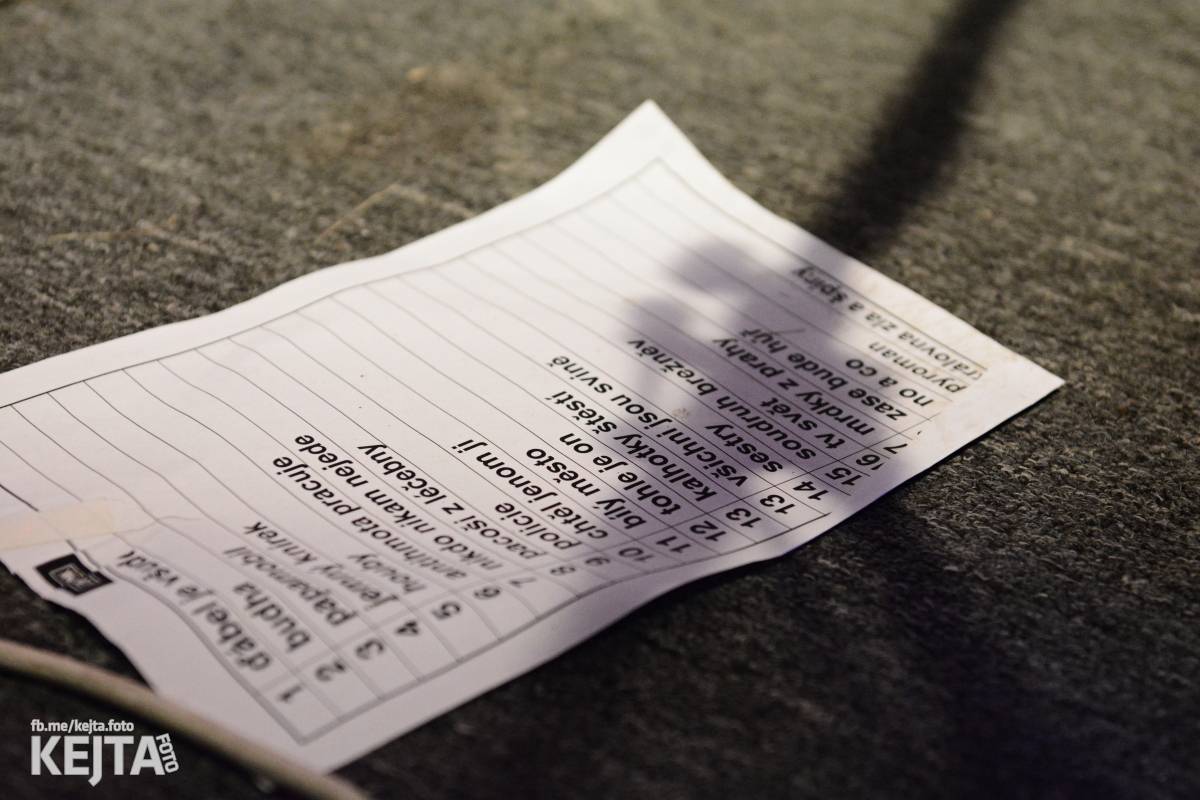 1 ďábel je
2 budha
3 papamobil
4 jenny knírek
5 houby
6 antihmota pracuje
7 nikdo nikam nejede
8 pacoši z léčebny
9 policie
10 chtěl jenom ji
11 bílý město
12 tohle je on
13 kalhotky štěstí
13 všichni jsou svině
14 sestry
15 soudruh brežněv
16 tv svět
7 mrdky z prahy
zase bude hůř
no a co
pyroman
zla a špíny
fb.me/kejta.foto
KEJTA FOTO